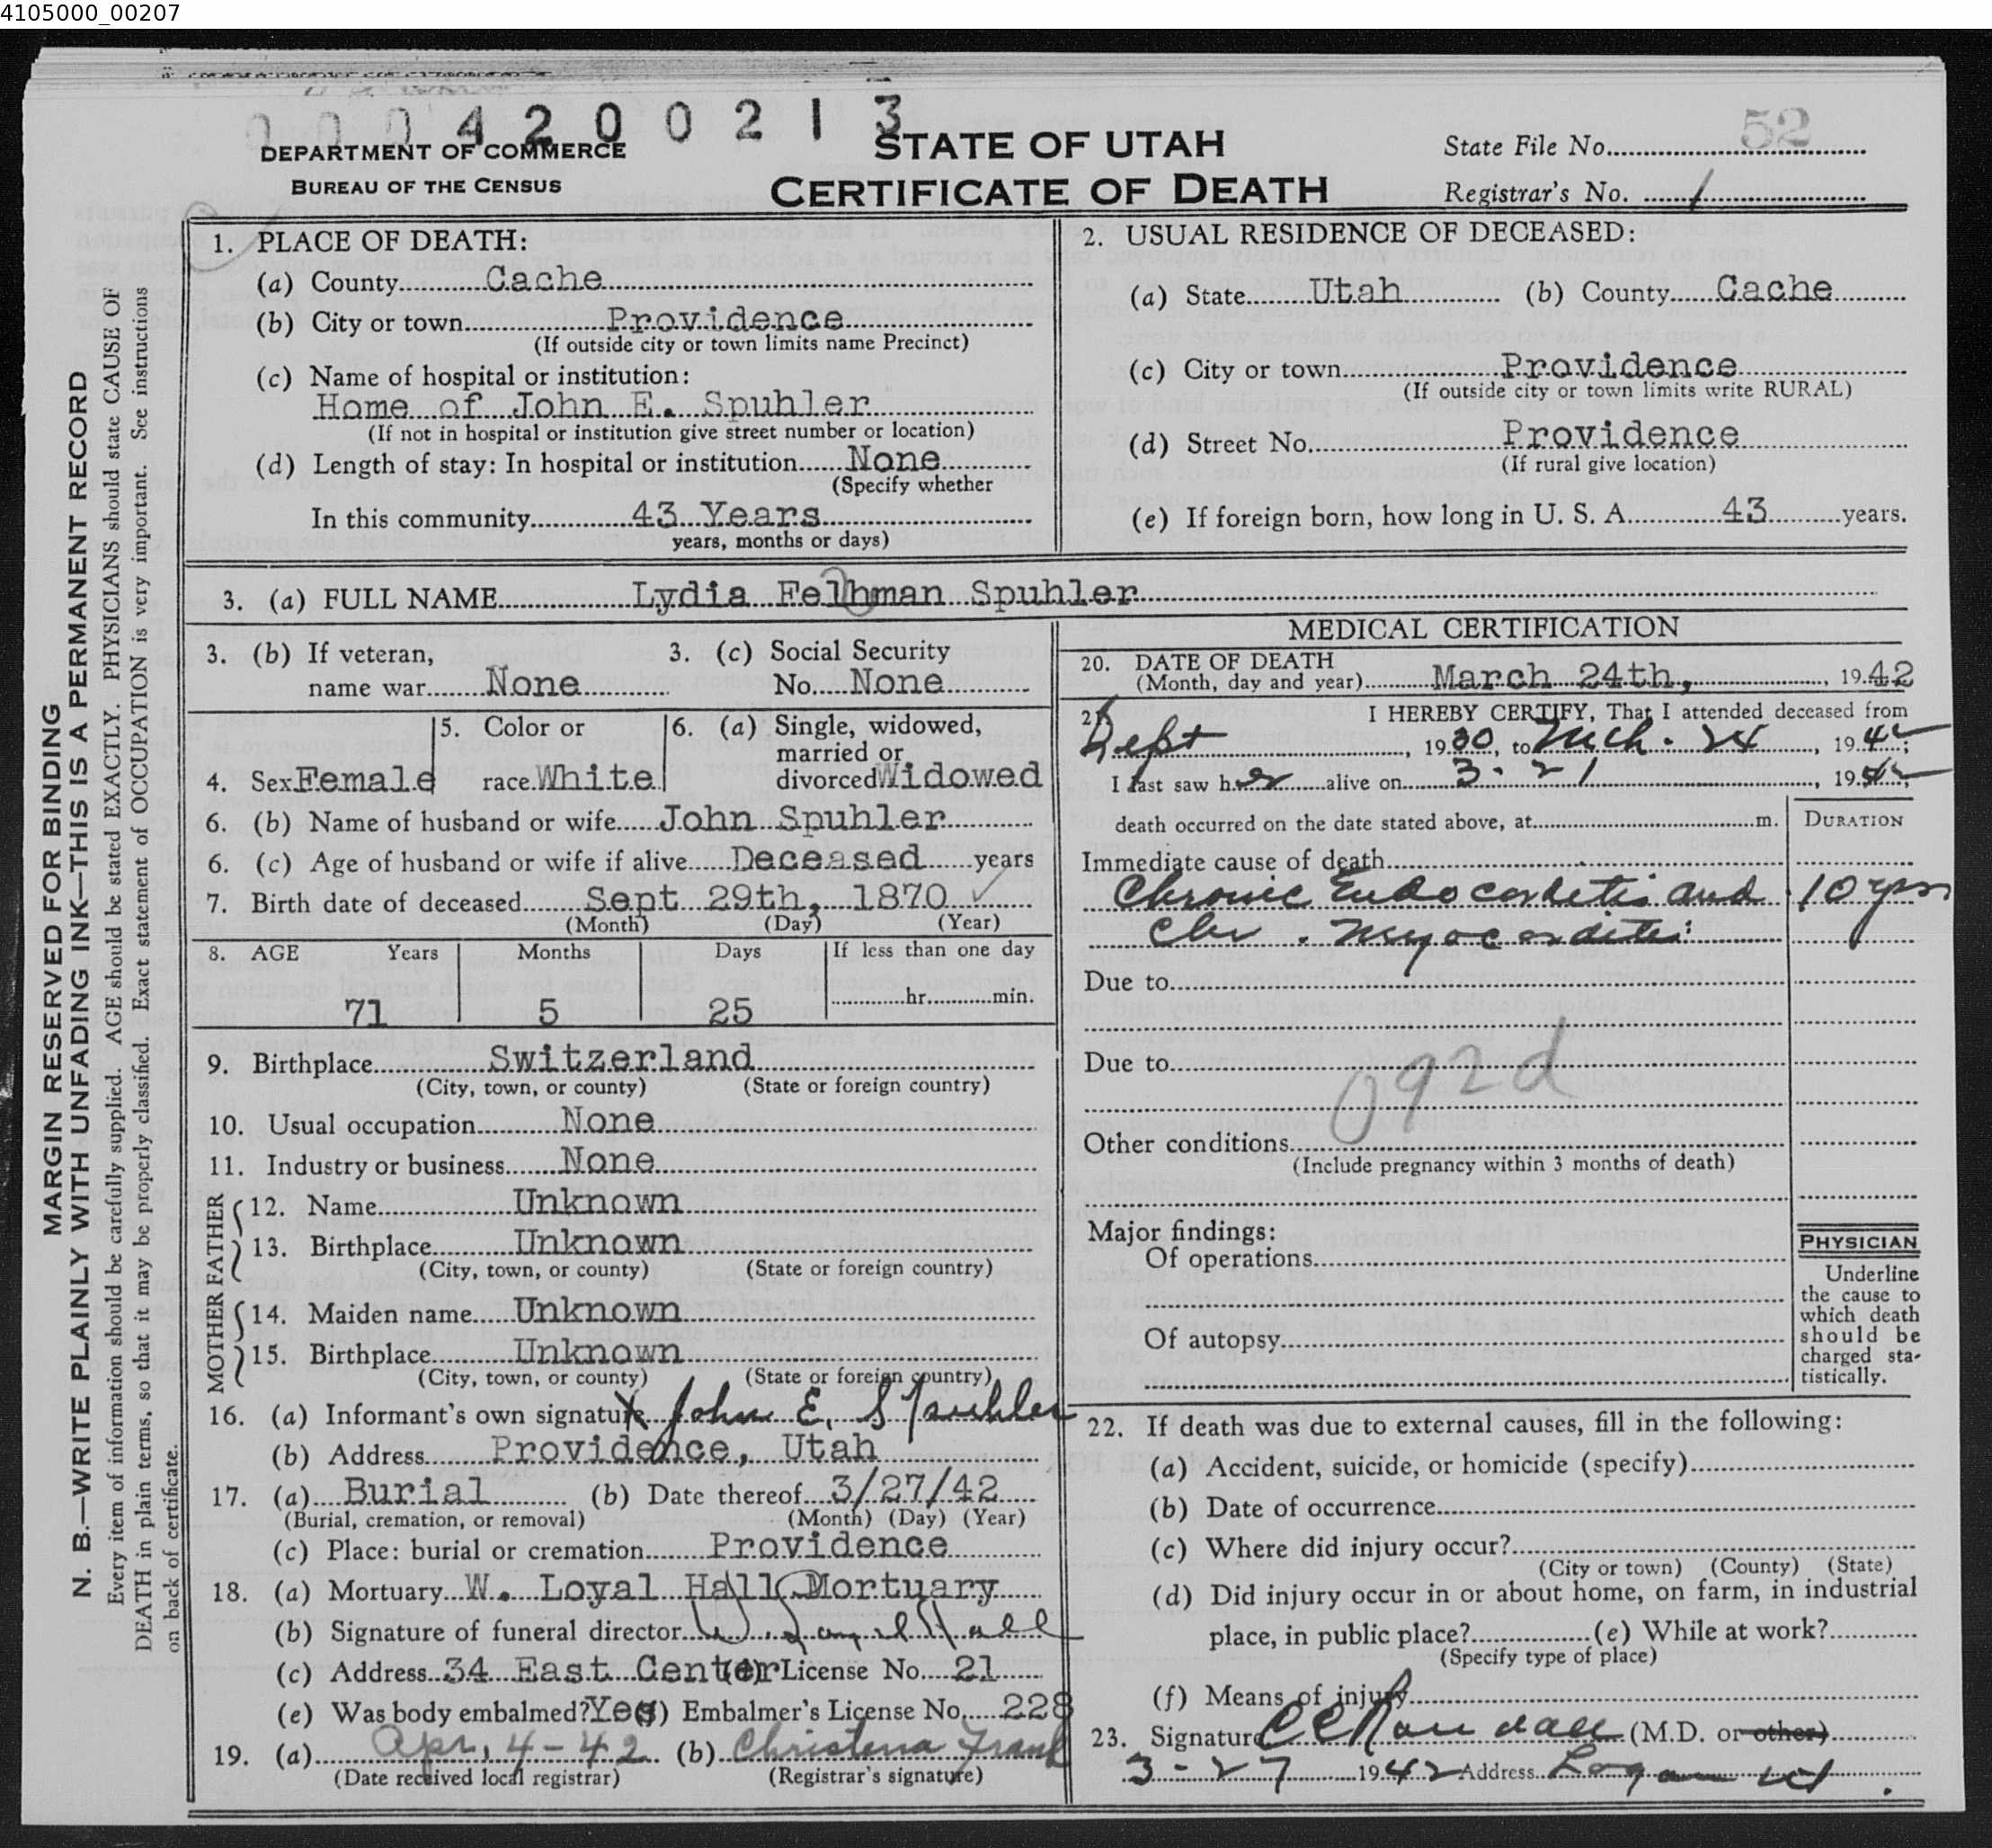 4105000_00207
0 0 0 4 2 0 0 2 1 3
DEPARTMENT OF COMMERCE
BUREAU OF THE CENSUS
STATE OF UTAH
CERTIFICATE OF DEATH
State File No. 52
Registrar's No. 1
MARGIN RESERVED FOR BINDING
N. B.—WRITE PLAINLY WITH UNFADING INK—THIS IS A PERMANENT RECORD
Every item of information should be carefully supplied. AGE should be stated EXACTLY. PHYSICIANS should state CAUSE OF
DEATH in plain terms, so that it may be properly classified. Exact statement of OCCUPATION is very important. See instructions
on back of certificate.
1. PLACE OF DEATH:
(a) County Cache
(b) City or town Providence
(If outside city or town limits name Precinct)
(c) Name of hospital or institution:
Home of John E. Spuhler
(If not in hospital or institution give street number or location)
(d) Length of stay: In hospital or institution None
(Specify whether
In this community 43 Years
years, months or days)
2. USUAL RESIDENCE OF DECEASED:
(a) State Utah (b) County Cache
(c) City or town Providence
(If outside city or town limits write RURAL)
(d) Street No. Providence
(If rural give location)
(e) If foreign born, how long in U. S. A. 43 years.
3. (a) FULL NAME Lydia Felhman Spuhler
3. (b) If veteran,
name war None
3. (c) Social Security
No. None
4. Sex Female
5. Color or
race White
6. (a) Single, widowed,
married or
divorced Widowed
6. (b) Name of husband or wife John Spuhler
6. (c) Age of husband or wife if alive Deceased years
7. Birth date of deceased Sept 29th, 1870 ✓
(Month) (Day) (Year)
8. AGE Years Months Days If less than one day
71 5 25 hr. min.
9. Birthplace Switzerland
(City, town, or county) (State or foreign country)
10. Usual occupation None
11. Industry or business None
FATHER
12. Name Unknown
13. Birthplace Unknown
(City, town, or county) (State or foreign country)
MOTHER
14. Maiden name Unknown
15. Birthplace Unknown
(City, town, or county) (State or foreign country)
16. (a) Informant's own signature X John E. Spuhler
(b) Address Providence, Utah
17. (a) Burial (b) Date thereof 3/27/42
(Burial, cremation, or removal) (Month) (Day) (Year)
(c) Place: burial or cremation Providence
18. (a) Mortuary W. Loyal Hall Mortuary
(b) Signature of funeral director W. Loyal Hall
(c) Address 34 East Center (d) License No. 21
(e) Was body embalmed? Yes (f) Embalmer's License No. 228
19. (a) Apr. 4-42 (b) Christena Frank
(Date received local registrar) (Registrar's signature)
MEDICAL CERTIFICATION
20. DATE OF DEATH
(Month, day and year) March 24th, 1942
21. I HEREBY CERTIFY, That I attended deceased from
Sept, 1930, to Mch. 24, 1942;
I last saw her alive on 3-21, 1942;
death occurred on the date stated above, at m.
DURATION
Immediate cause of death
Chronic Endocarditis and 10 yrs
Chr. Myocarditis
Due to
Due to
092d
Other conditions
(Include pregnancy within 3 months of death)
Major findings:
Of operations
Of autopsy
PHYSICIAN
Underline
the cause to
which death
should be
charged sta-
tistically.
22. If death was due to external causes, fill in the following:
(a) Accident, suicide, or homicide (specify)
(b) Date of occurrence
(c) Where did injury occur?
(City or town) (County) (State)
(d) Did injury occur in or about home, on farm, in industrial
place, in public place? (e) While at work?
(Specify type of place)
(f) Means of injury
23. Signature C C Randall (M.D. or other)
3-27 1942 Address Logan Ut.